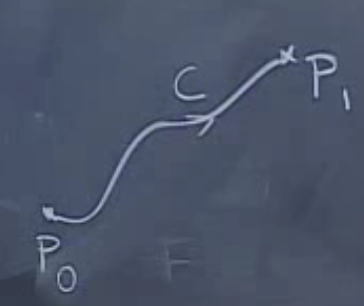 C
P₁
P₀